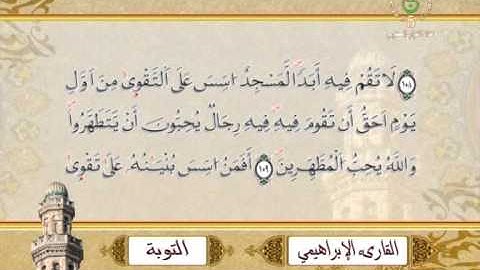 ﴿١٠٨﴾ لَا تَقُمْ فِيهِ أَبَدًا لَّمَسْجِدٌ اسِّسَ عَلَى اَلتَّقْوِىٰ مِنَ اَوَّلِ
يَوْمٍ اَحَقُّ أَن تَقُومَ فِيهِ فِيهِ رِجَالٌ يُحِبُّونَ أَنْ يَّتَطَهَّرُوا
وَاللَّهُ يُحِبُّ الْمُطَّهِّرِينَ ﴿١٠٩﴾ أَفَمَنُ اسِّسَ بُنْيَـٰنُهُ عَلَىٰ تَقْوِىٰ
التوبة
القارىء الإبراهيمي